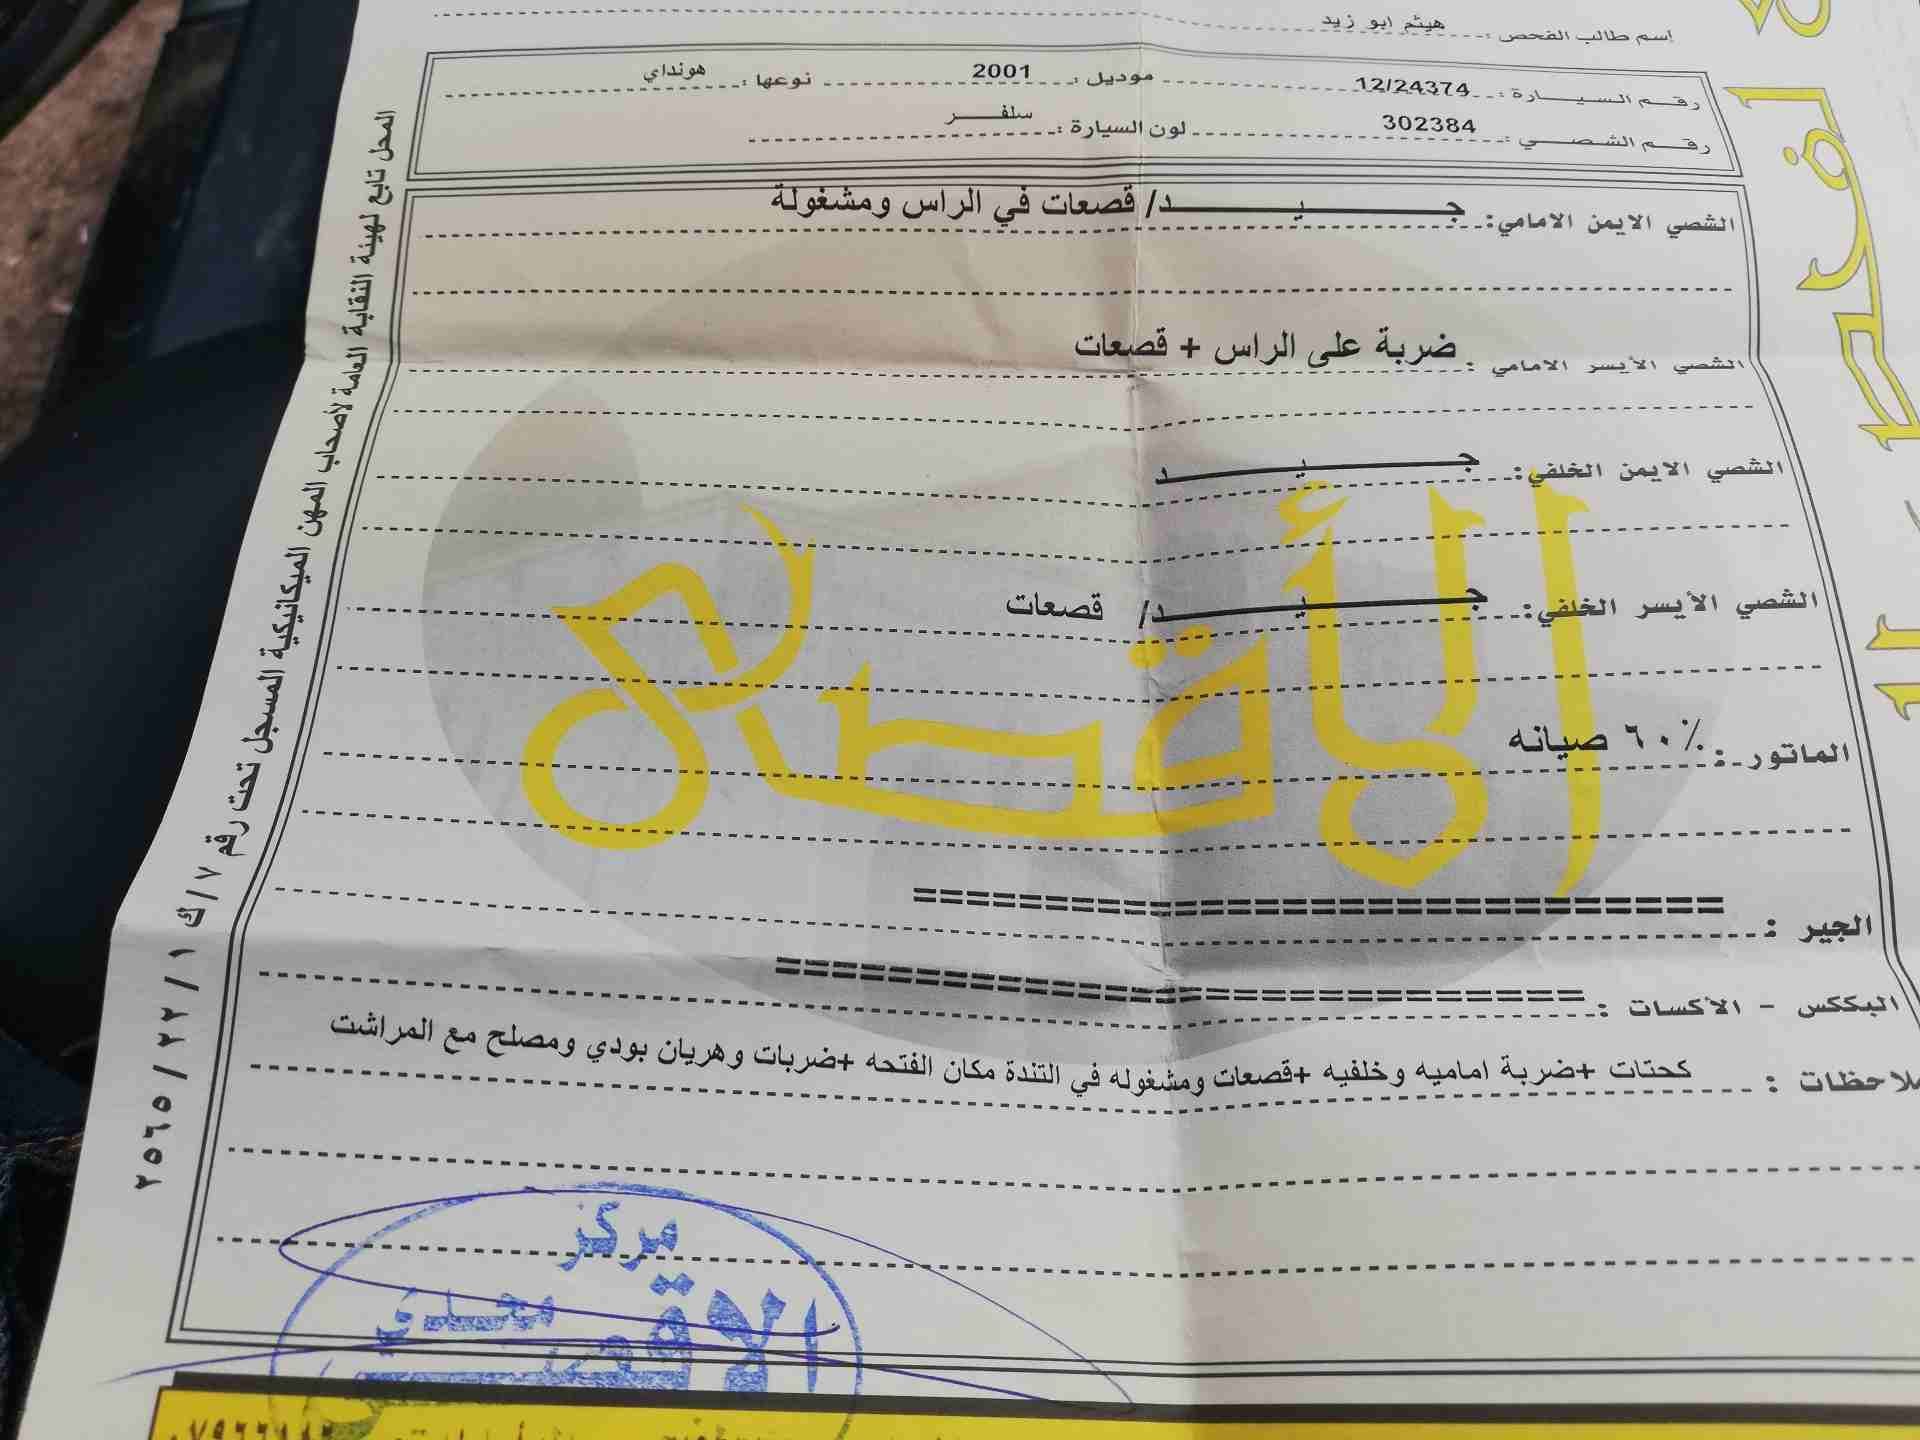 إسم طالب الفحص : هيثم ابو زيد
رقم السيارة : 12/24374 موديل : 2001 نوعها : هونداي
رقم الشصي : 302384 لون السيارة : سلفر
الشصي الايمن الامامي : جيد/ قصعات في الراس ومشغولة
الشصي الأيسر الامامي : ضربة على الراس + قصعات
الشصي الايمن الخلفي : جيد
الشصي الأيسر الخلفي : جيد/ قصعات
الماتور : ٦٠٪ صيانه
الجير : ===============================
البككس - الأكسات : ===============================
ملاحظات : كحتات +ضربة اماميه وخلفيه +قصعات ومشغوله في التندة مكان الفتحه +ضربات وهريان بودي ومصلح مع المراشت
المحل تابع لهيئة النقابة العامة لأصحاب المهن الميكانيكية المسجل تحت رقم ٧/ك ١/٢٢/٢٥٦٥
الأقصى
لفحص
مركز
الاقصى